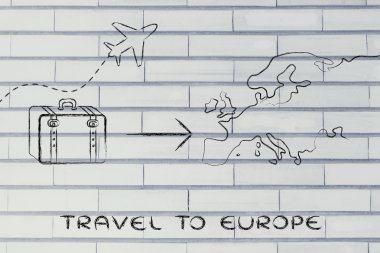 TRAVEL TO EUROPE